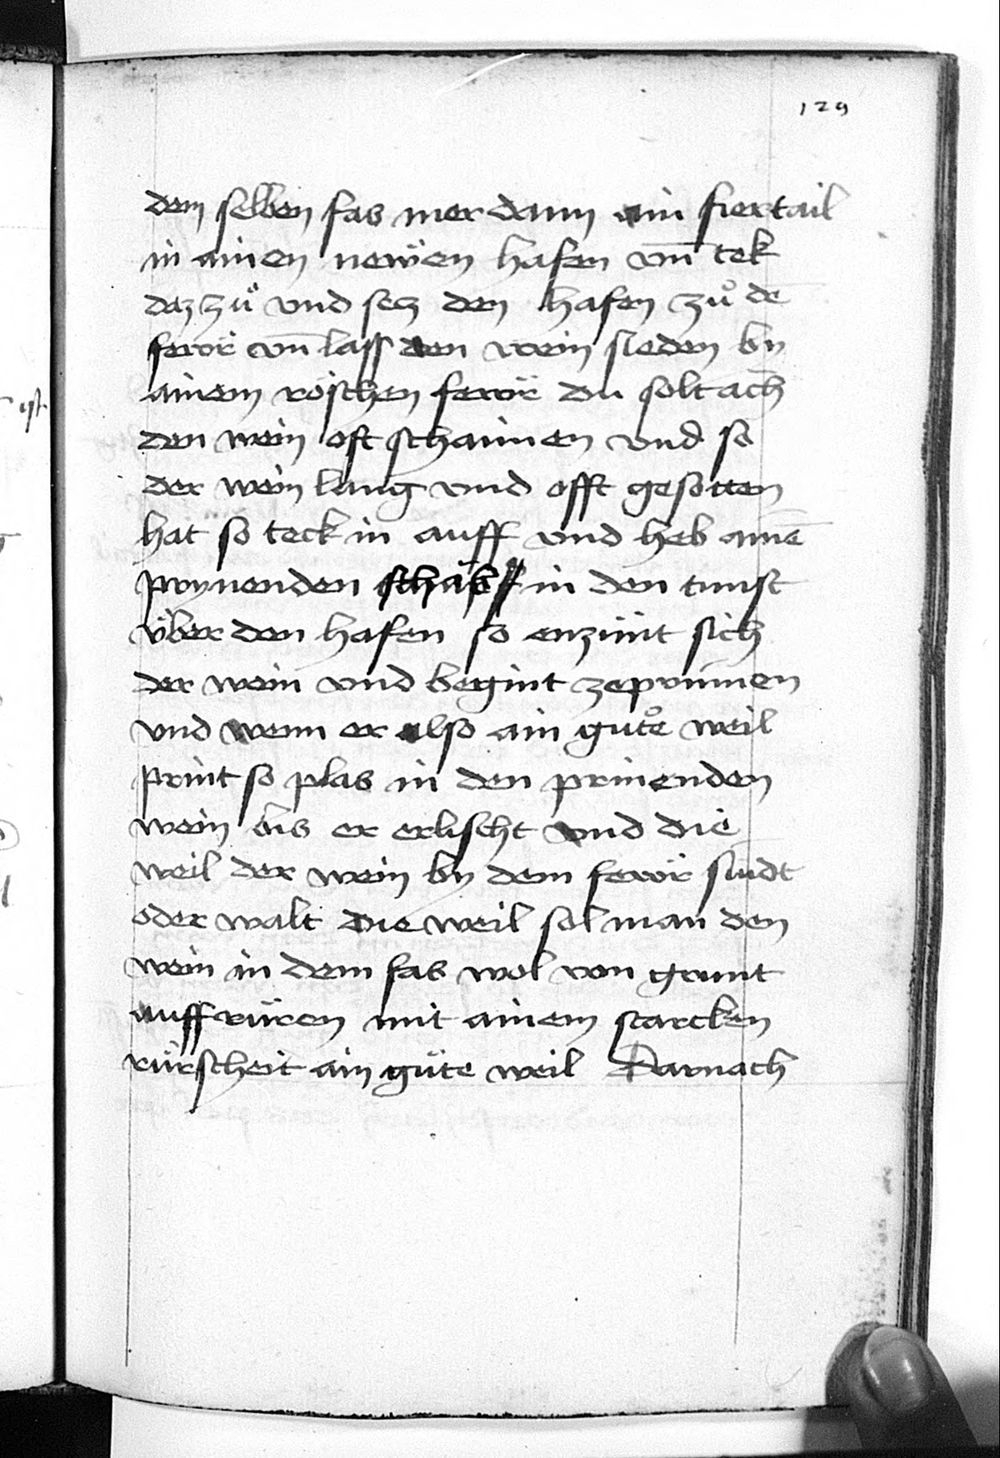 129
dem selben fas mer dann ain fiertail
in ainen newen hafen vn̄ tek
daz zuͦ vnd secz den hafen zuͦ dē
fewr vn̄ lass den wein sieden by
ainem röschen fewr du solt ach
den wein oft schaimen vnd so
der wein lang vnd offt gesotten
hat so teck in auff vnd heb ainē
prynenden schab in den tunst
über den hafen so enzünt sich
der wein vnd begint zeprinnen
vnd wenn er also ain gutͦe weil
print so plas in den prinenden
wein bis er erlischt vnd die
weil der wein by dem fewr siudt
oder walt die weil sol man den
wein in dem fas wol von grunt
auff rüren mit ainem starcken
rürscheit ain güte weil Darnach
ist